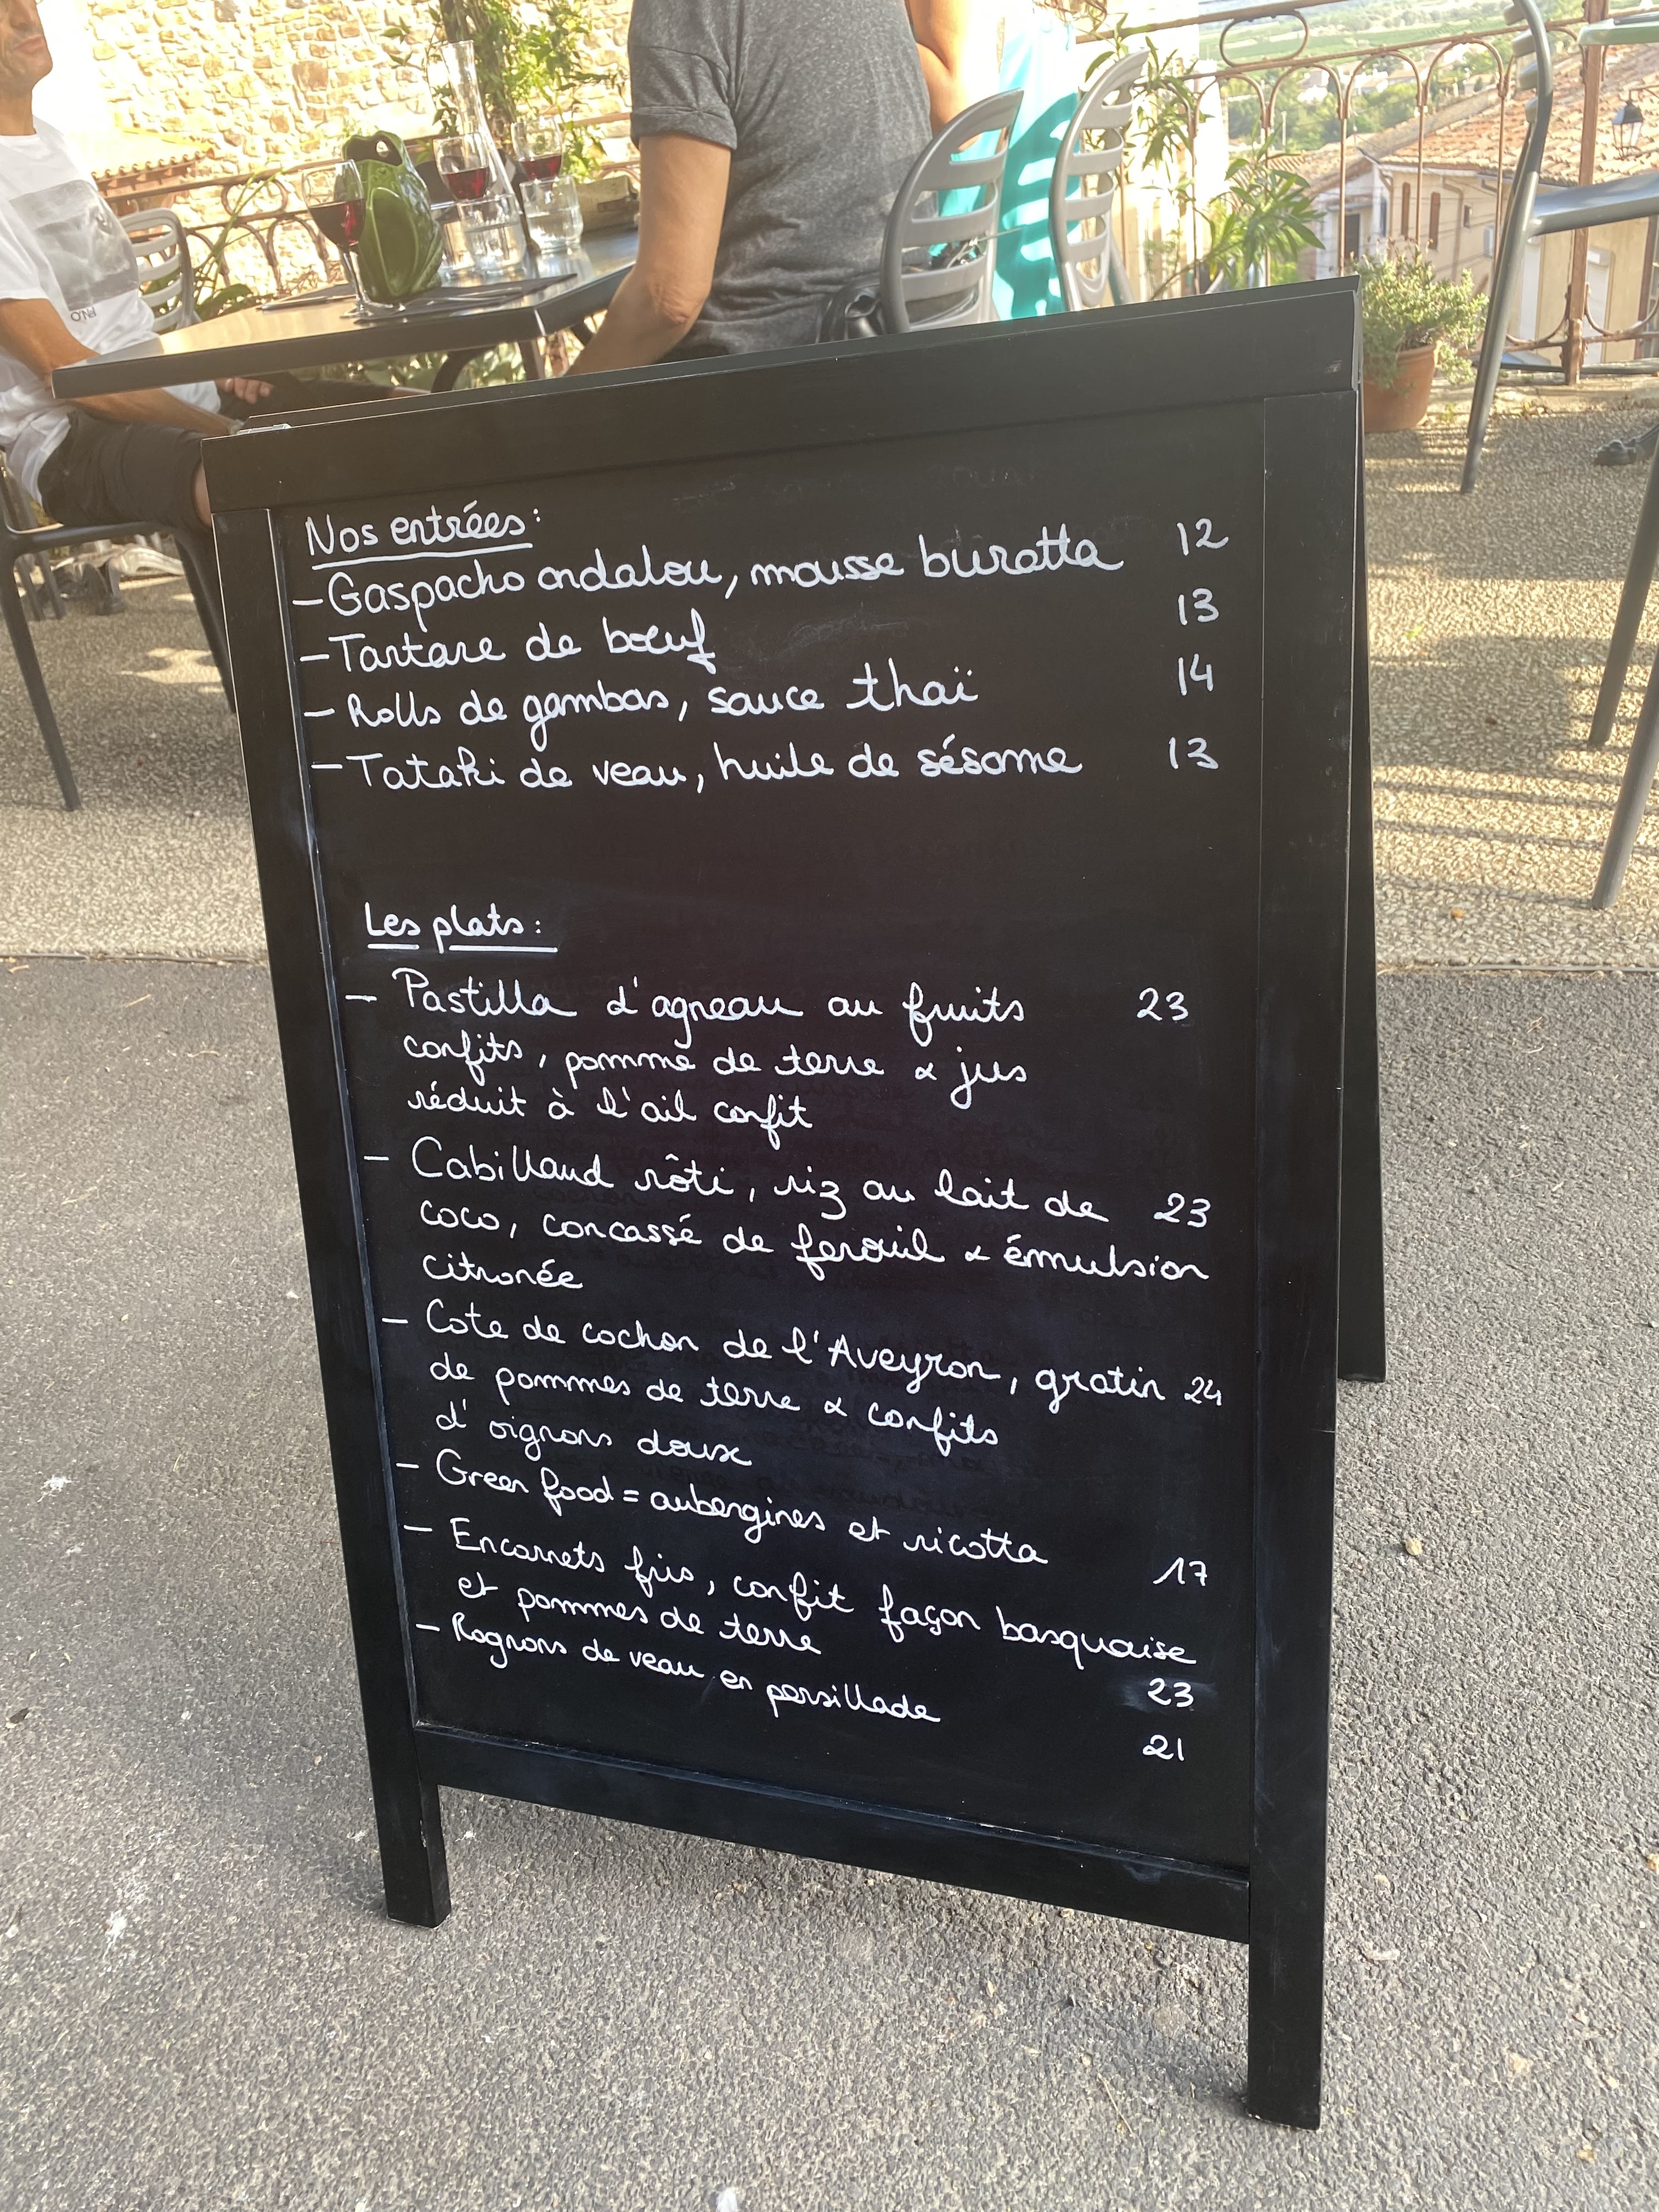 Nos entrées :
- Gaspacho andalou, mousse buratta 12
- Tartare de bœuf 13
- Rolls de gambas, sauce thaï 14
- Tataki de veau, huile de sésame 13
Les plats :
- Pastilla d'agneau au fruits 23
confits, pomme de terre & jus
réduit à l'ail confit
- Cabillaud rôti, riz au lait de 23
coco, concassé de fenouil & émulsion
citronée
- Cote de cochon de l'Aveyron, gratin 24
de pommes de terre & confits
d'oignons doux
- Green food = aubergines et ricotta 17
- Encornets fris, confit façon basquaise
et pommes de terre 23
- Rognons de veau en persillade 21